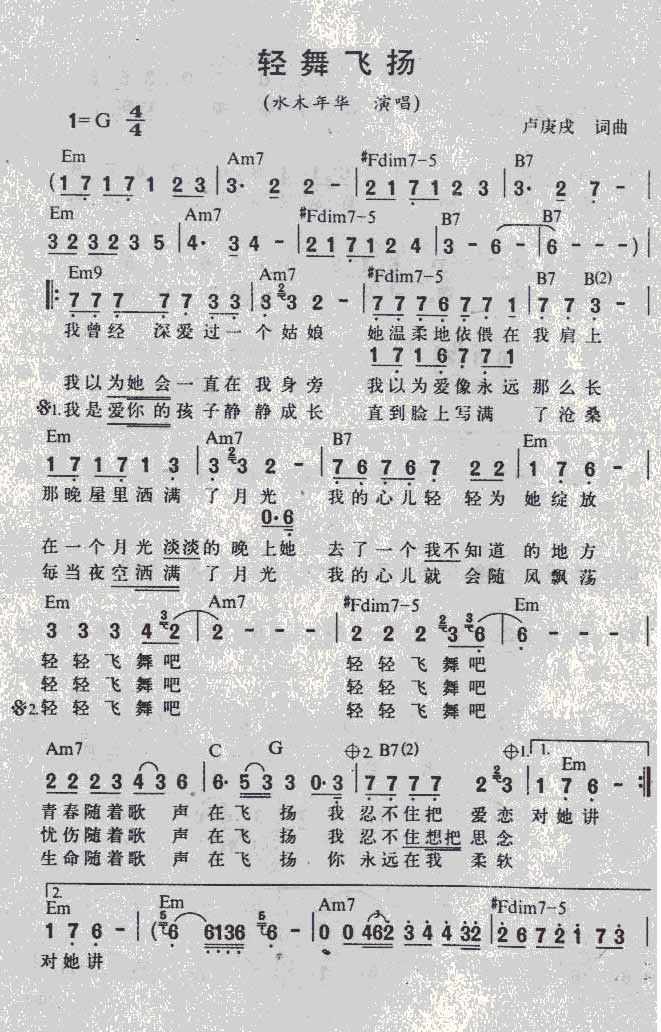 轻舞飞扬
(水木年华 演唱)
1=G 4/4
卢庚戌 词曲
Em Am7 #Fdim7-5 B7
(1 7 1 7 1 2 3 | 3· 2 2 - | 2 1 7 1 2 3 | 3· 2 7 - |
Em Am7 #Fdim7-5 B7 B7
3 2 3 2 3 5 | 4· 3 4 - | 2 1 7 1 2 4 | 3 - 6 - | 6 - - - )|
Em9 Am7 #Fdim7-5 B7 B(2)
‖: 7 7 7 7 7 3 3 | 3 2 3 2 - | 7 7 7 6 7 7 1 | 7 7 3 - |
我曾经 深爱过一个姑娘 她温柔地依偎在我肩上
1 7 1 6 7 7 1
我以为她会一直在我身旁 我以为爱像永远那么长
𝄋1.我是爱你的孩子静静成长 直到脸上写满 了沧桑
Em Am7 B7 Em
1 7 1 7 1 3 | 3 2 3 2 - | 7 6 7 6 7 2 2 | 1 7 6 - |
那晚屋里洒满 了月光 我的心儿轻 轻为 她绽放
0·6
在一个月光淡淡的晚上她 去了一个我不知道 的地方
每当夜空洒满 了月光 我的心儿就 会随 风飘荡
Em Am7 #Fdim7-5 Em
3 3 3 4 3 2 | 2 - - - | 2 2 2 2 3 3 6 | 6 - - - |
轻轻飞舞吧 轻轻飞舞吧
轻轻飞舞吧 轻轻飞舞吧
𝄋2.轻轻飞舞吧 轻轻飞舞吧
Am7 C G 𝄌2. B7(2) 𝄌1. 1. Em
2 2 2 3 4 3 6 | 6· 5 3 3 0·3 | 7 7 7 7 2 2 3 | 1 7 6 - :‖
青春随着歌 声在飞 扬 我 忍不住把 爱恋 对她讲
忧伤随着歌 声在飞 扬 我 忍不住想把 思念
生命随着歌 声在飞 扬 你 永远在我 柔软
2.
Em Em Am7 #Fdim7-5
1 7 6 - | ( 5 6 6136 5 6 - | 0 0 462 3 4 4 32 | 2 6 7 2 1 7 3 |
对她讲